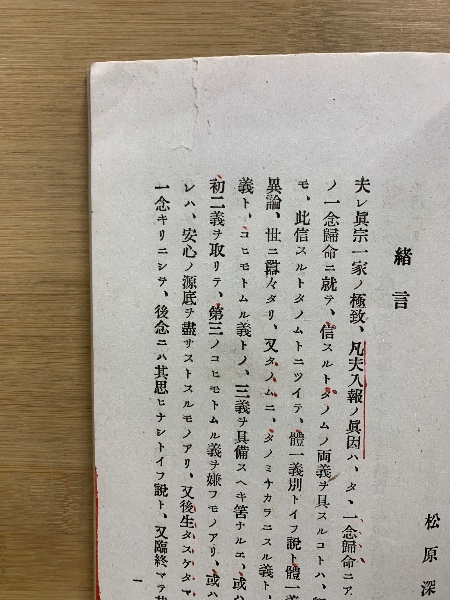 緒言
松原深
夫レ眞宗一家ノ極致、凡夫入報ノ眞因ハ、タヽ一念歸命ニア
ノ一念歸命ニ就テ、信スルトタノムノ兩義ヲ具スルコトハ、
モ、此信スルトタノムトニツイテ、體一義別トイフ說ト體一義
異論、世ニ囂々タリ、又タノムニ、タノミチカラニスル義ト、
義ト、コヒモトムル義トノ、三義ヲ具備スヘキ筈ナルニ、或ハ
初二義ヲ取リテ、第三ノコヒモトムル義ヲ嫌フモノアリ、或ハ
レハ、安心ノ源底ヲ盡サストスルモノアリ、又後生タスケタマ
一念キリニシテ、後念ニハ其思ヒナシトイフ說ト、又臨終マテ
一